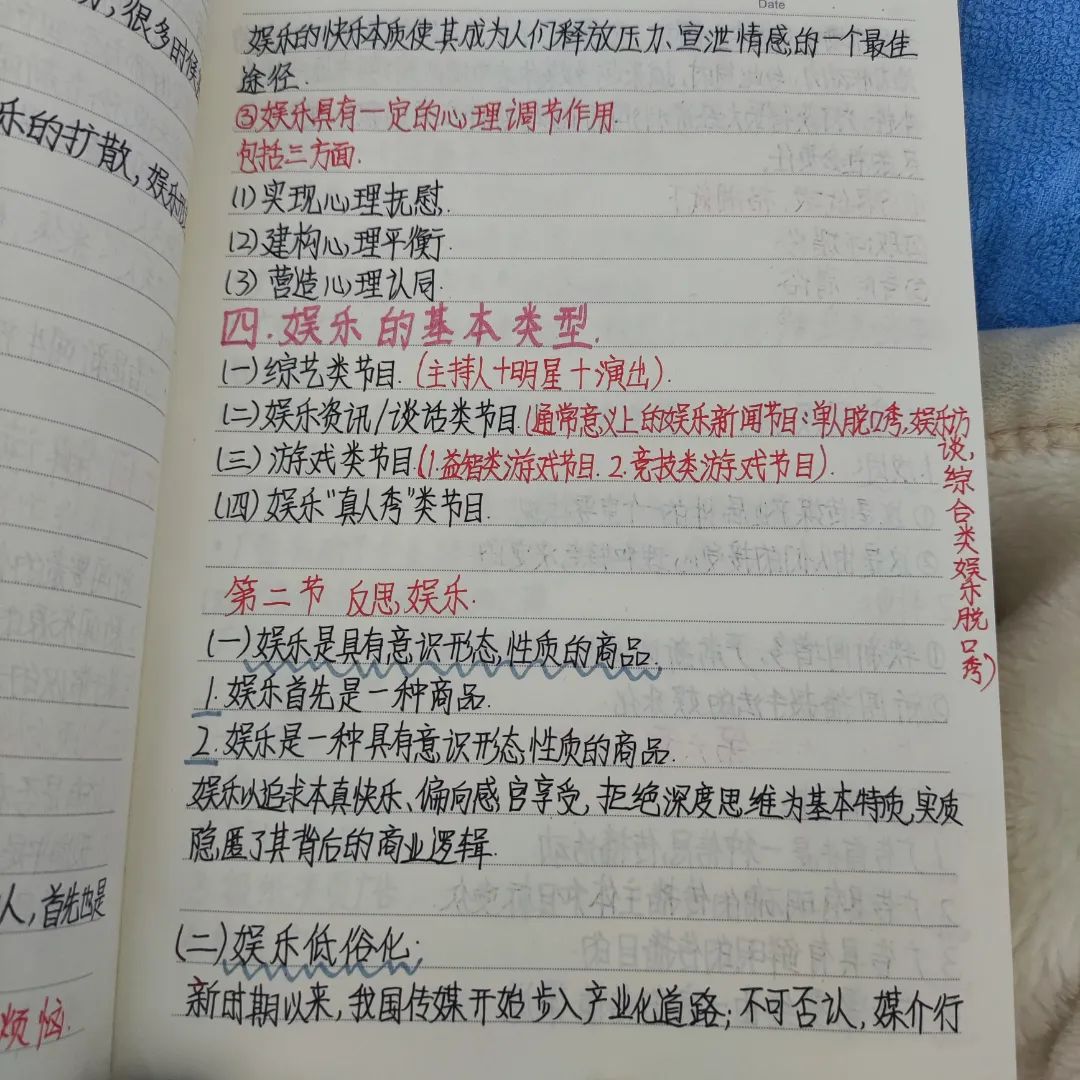 Date
娱乐的快乐本质使其成为人们释放压力、宣泄情感的一个最佳
途径.
③娱乐具有一定的心理调节作用.
包括三方面.
(1)实现心理抚慰.
(2)建构心理平衡.
(3)营造心理认同.
四.娱乐的基本类型.
(一)综艺类节目.(主持人+明星+演出).
(二)娱乐资讯/谈话类节目.(通常意义上的娱乐新闻节目:单人脱口秀,娱乐访
谈,综合类娱乐脱口秀)
(三)游戏类节目.(1.益智类游戏节目.2.竞技类游戏节目).
(四)娱乐“真人秀”类节目.
第二节 反思娱乐.
(一)娱乐是具有意识形态性质的商品.
1.娱乐首先是一种商品.
2.娱乐是一种具有意识形态性质的商品.
娱乐以追求本真快乐、偏向感官享受,拒绝深度思维为基本特质,实质
隐匿了其背后的商业逻辑.
(二)娱乐低俗化.
新时期以来,我国传媒开始步入产业化道路;不可否认,媒介行
很多时候
乐的扩散,娱乐
人,首先也是
烦恼.